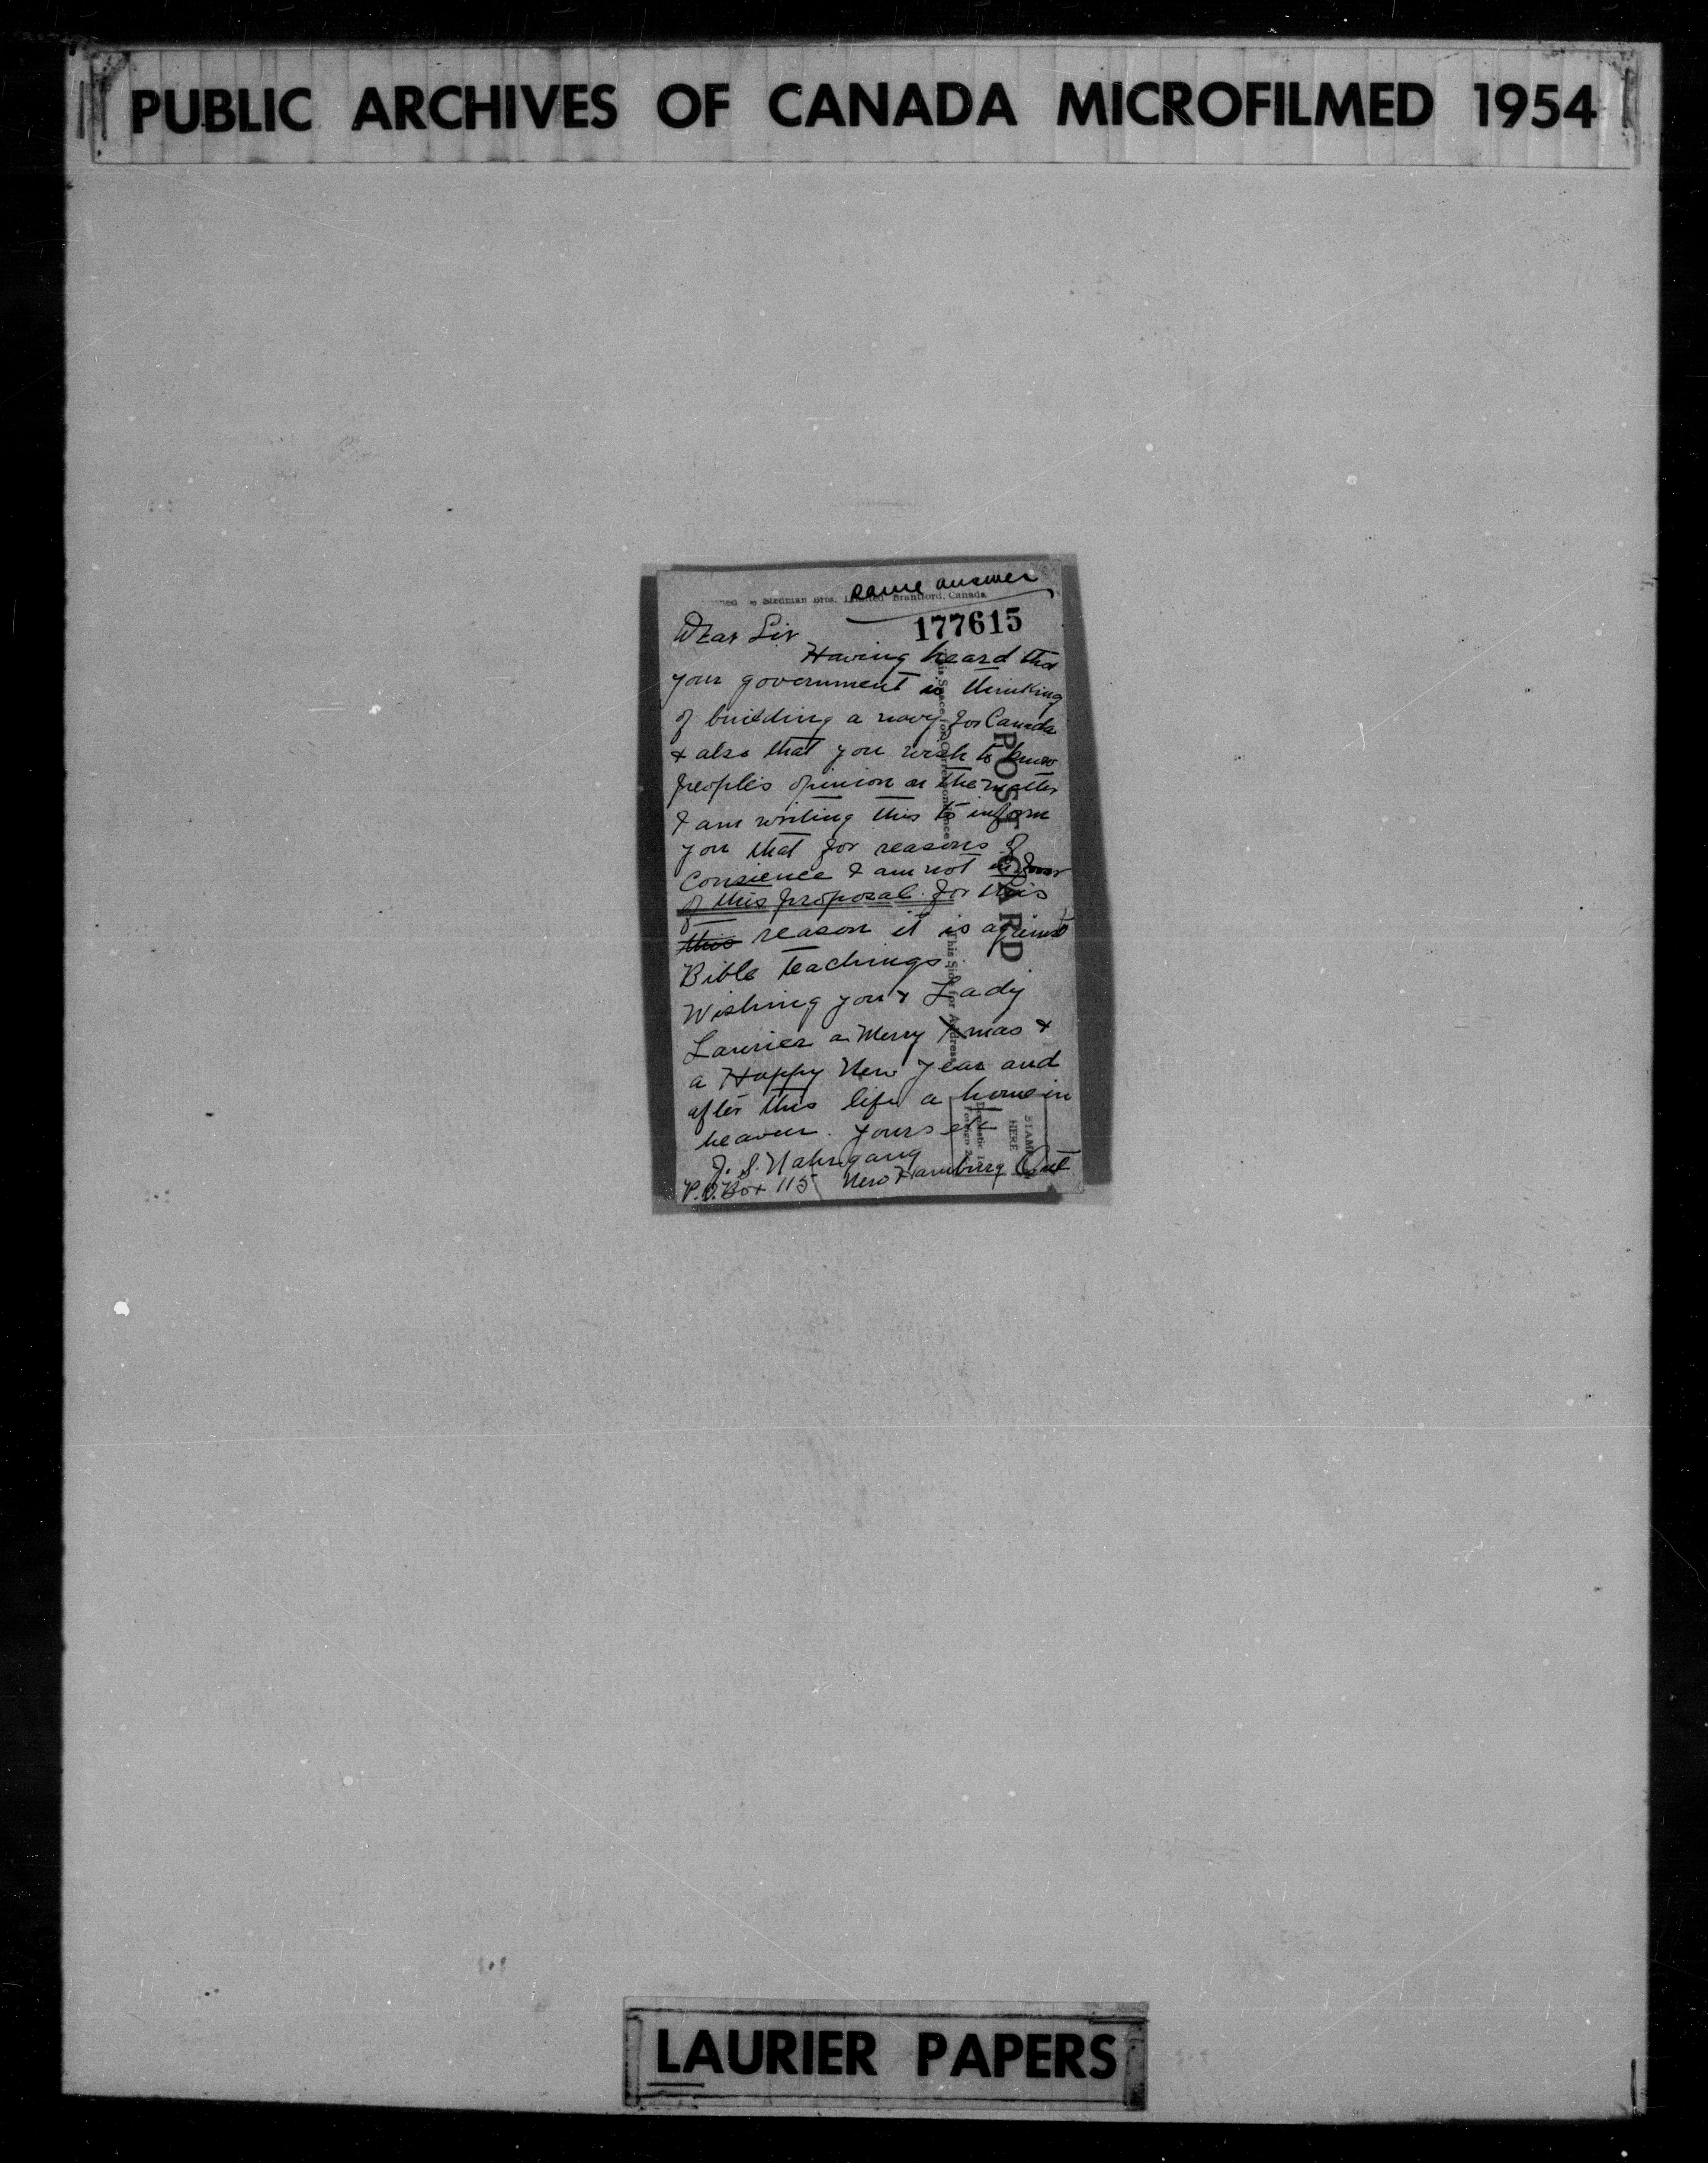 PUBLIC ARCHIVES OF CANADA MICROFILMED 1954
same answer
Stedman Bros. Limited Brantford, Canada
177615
Dear Sir
Having heard that
your government is thinking
of building a navy for Canada
& also that you wish to know
people's opinion on the matter
I am writing this to inform
you that for reasons of
Consience I am not in favor
of this proposal. for this
this reason it is against
Bible teachings.
Wishing you & Lady
Laurier a Merry Xmas &
a Happy New Year and
after this life a home in
heaven. Yours etc
J. S. Nahrgang
P.O. Box 115 New Hamburg Ont
POST CARD
This Space for Correspondence
This Side for Address
STAMP
HERE
LAURIER PAPERS